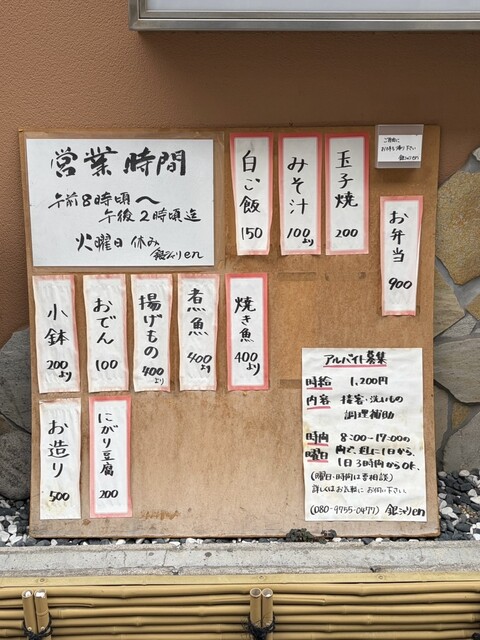 営業時間
午前8時頃〜
午後2時頃迄
火曜日 休み
銀シャリen
白ご飯
150
みそ汁
100より
玉子焼
200
ご自由に
お持ち帰り下さい
銀シャリen
お弁当
900
小鉢
200より
おでん
100
揚げもの
400より
煮魚
400より
焼き魚
400より
お造り
500
にがり豆腐
200
アルバイト募集
時給 1,200円
内容 接客・洗いもの
調理補助
時間 8:00〜17:00の
曜日 内で、週に1日から、
1日3時間からOK.
(曜日・時間は要相談)
詳しくはお気軽にお伺い下さい
(080-9755-0477) 銀シャリen